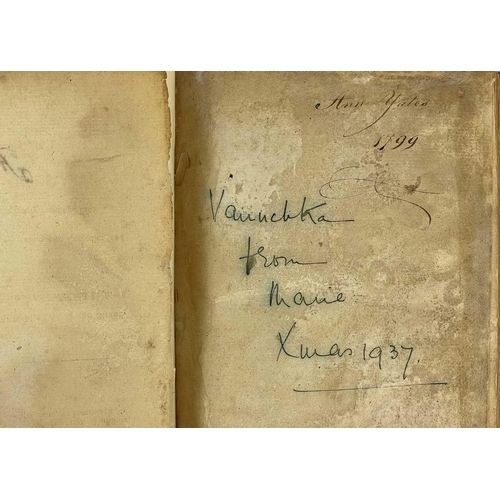 Ann Yates
1799
Vanuchka
from
Marie
Xmas 1937.